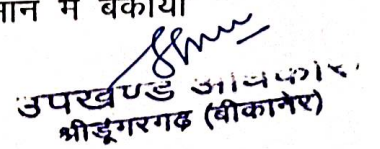 में बकाया
उपखण्ड
श्रीडूंगरगढ़ (बीकानेर)